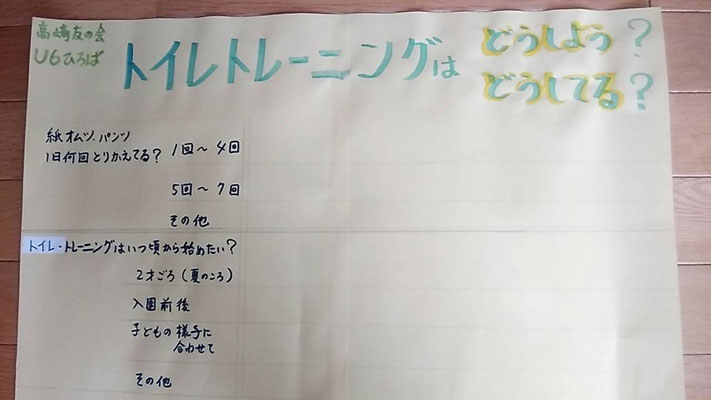 高崎友の会
U6ひろば
トイレトレーニングは
どうしよう?
どうしてる?
紙オムツ、パンツ
1日何回とりかえてる?
1回〜4回
5回〜7回
その他
トイレ・トレーニングはいつ頃から始めたい?
2才ごろ(夏のころ)
入園前後
子どもの様子に
合わせて
その他